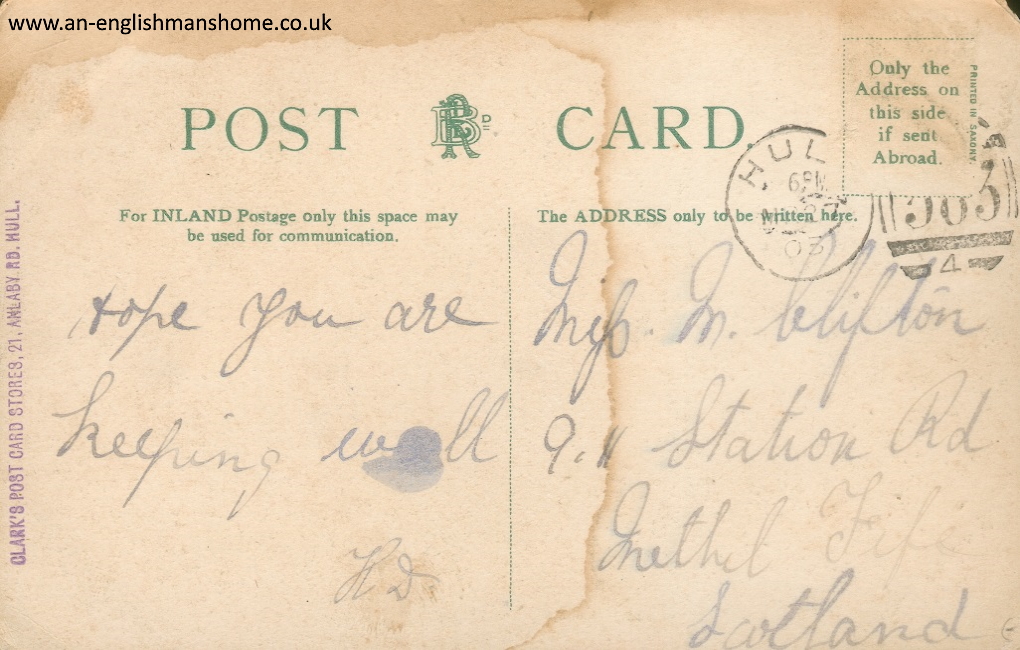 www.an-englishmanshome.co.uk
POST CARD.
Only the
Address on
this side
if sent
Abroad.
PRINTED IN SAXONY.
HUL
6 PM
03
383
4
For INLAND Postage only this space may
be used for communication.
The ADDRESS only to be written here.
CLARK'S POST CARD STORES, 21, ANLABY RD. HULL.
Hope you are
keeping well
HD
Miss. M. Clifton
9. Station Rd
Methil Fife
Scotland